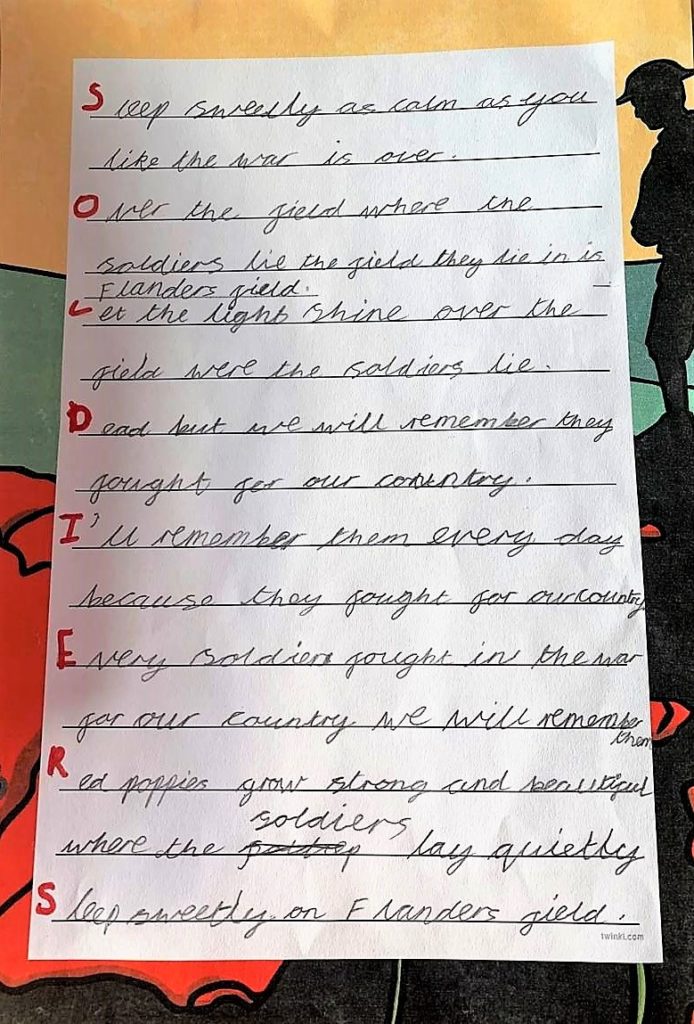 Sleep sweetly as calm as you
like the war is over.
Over the field where the
soldiers lie the field they lie in is
Flanders field.
Let the light shine over the
field were the soldiers lie.
Dead but we will remember they
fought for our country.
I'll remember them every day
because they fought for our country
Every soldiers fought in the war
for our country we will remember
them
Red poppies grow strong and beautiful
where the soldiers lay quietly
Sleep sweetly on Flanders field.
twinkl.com